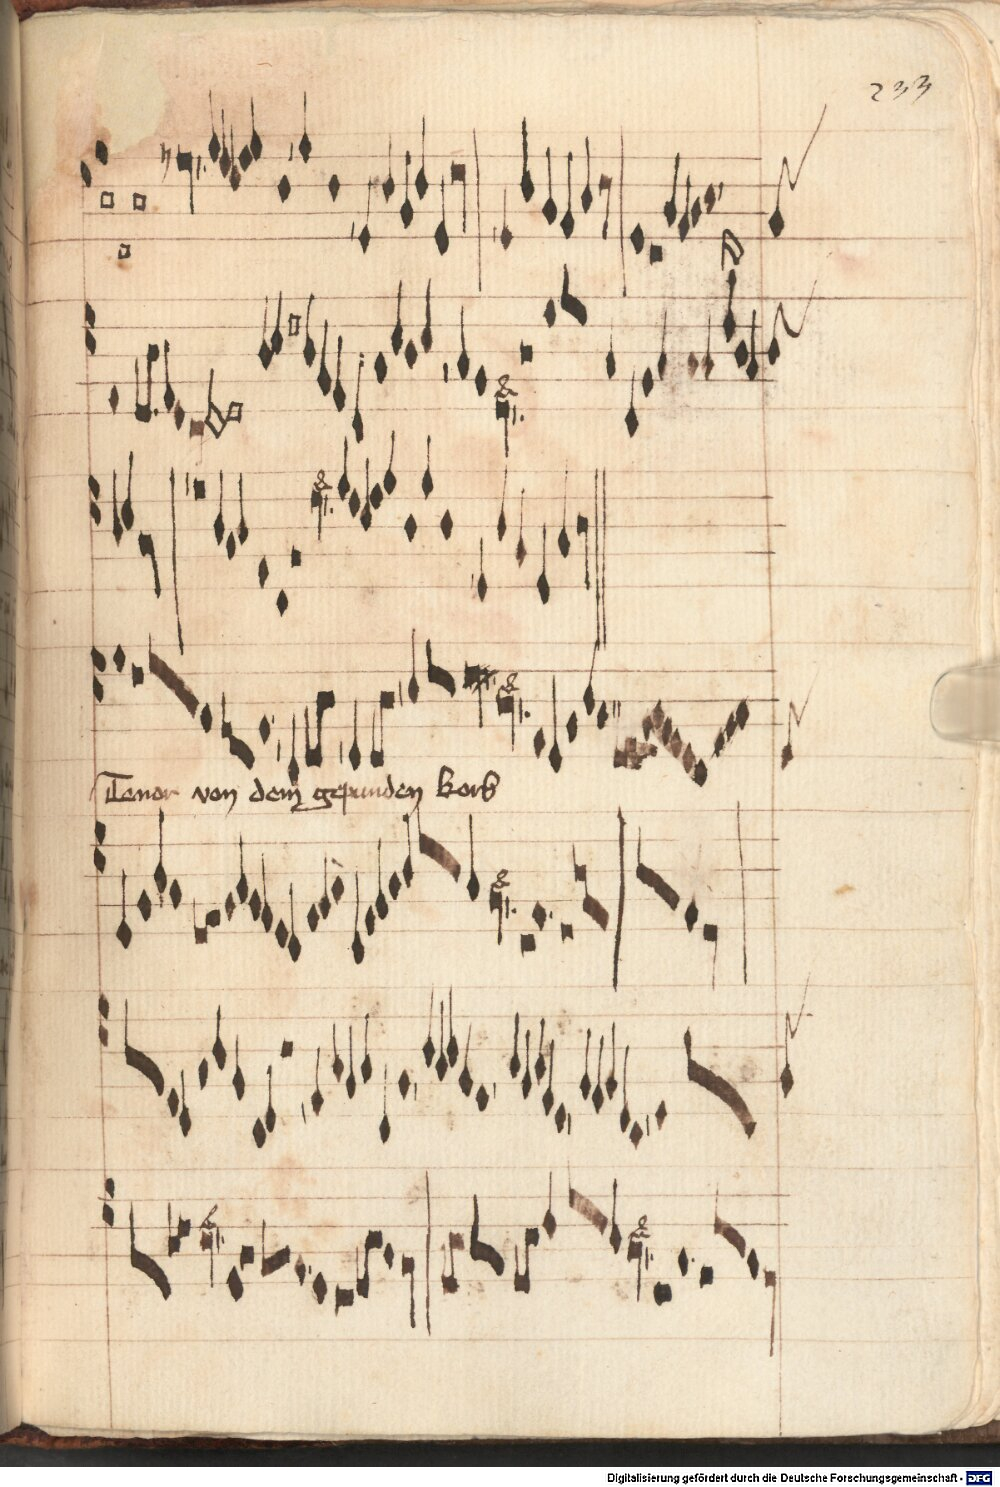 233
Tenor von dem gepunden korb
Digitalisierung gefördert durch die Deutsche Forschungsgemeinschaft - DFG